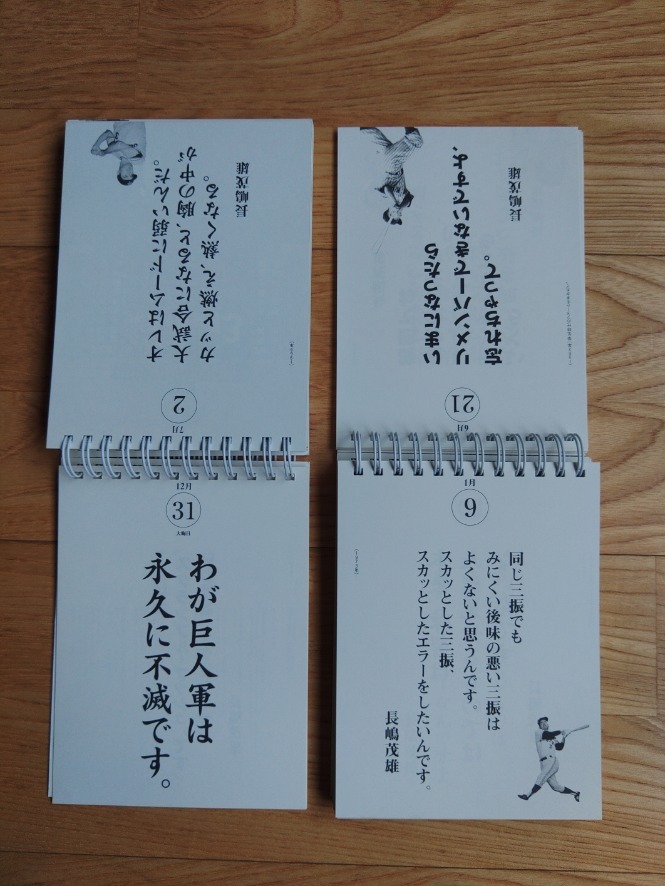 7月
2
オレはムードに弱いんだ。
大試合になると、胸の中が
カッと燃え、熱くなる。
長嶋茂雄
6月
21
いまになったら
リメンバーできないですよ、
忘れちゃって。
長嶋茂雄
12月
31
大晦日
わが巨人軍は
永久に不滅です。
1月
9
同じ三振でも
みにくい後味の悪い三振は
よくないと思うんです。
スカッとした三振、
スカッとしたエラーをしたいんです。
長嶋茂雄